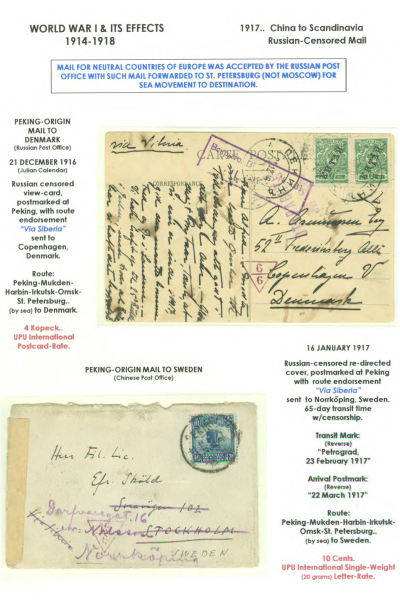 WORLD WAR I & ITS EFFECTS
1914-1918
1917.. China to Scandinavia
Russian-Censored Mail
MAIL FOR NEUTRAL COUNTRIES OF EUROPE WAS ACCEPTED BY THE RUSSIAN POST
OFFICE WITH SUCH MAIL FORWARDED TO ST. PETERSBURG (NOT MOSCOW) FOR
SEA MOVEMENT TO DESTINATION.
PEKING-ORIGIN
MAIL TO
DENMARK
(Russian Post Office)
21 DECEMBER 1916
(Julian Calendar)
Russian censored
view-card,
postmarked at
Peking, with route
endorsement
"Via Siberia"
sent to
Copenhagen,
Denmark.
Route:
Peking-Mukden-
Harbin-Irkutsk-Omsk-
St. Petersburg..
(by sea) to Denmark.
4 Kopeck..
UPU International
Postcard-Rate.
via Siberia
CARTE POSTALE
CORRESPONDANCE
Copenhagen V
Denmark
PEKING-ORIGIN MAIL TO SWEDEN
(Chinese Post Office)
Herr Fil. Lic.
Efr. Sköld
STOCKHOLM
Norrköping
SWEDEN
16 JANUARY 1917
Russian-censored re-directed
cover, postmarked at Peking
with route endorsement
"Via Siberia"
sent to Norrköping, Sweden.
65-day transit time
w/censorship.
Transit Mark:
(Reverse)
"Petrograd,
23 February 1917"
Arrival Postmark:
(Reverse)
"22 March 1917"
Route:
Peking-Mukden-Harbin-Irkutsk-
Omsk-St. Petersburg..
(by sea) to Sweden.
10 Cents.
UPU International Single-Weight
(20 grams) Letter-Rate.